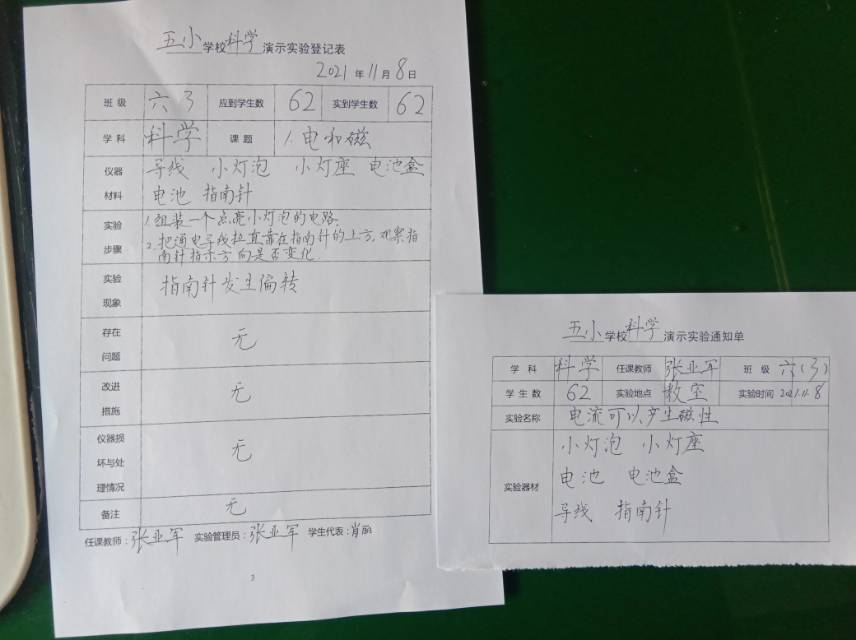 五小学校科学演示实验登记表
2021年11月8日
班级 六3 应到学生数 62 实到学生数 62
学科 科学 课题 1.电和磁
仪器材料 导线 小灯泡 小灯座 电池盒
电池 指南针
实验步骤 1.组装一个点亮小灯泡的电路.
2.把通电导线拉直靠在指南针的上方,观察指
南针指示方向是否变化
实验现象 指南针发生偏转
存在问题 无
改进措施 无
仪器损坏与处理情况 无
备注 无
任课教师:张亚军 实验管理员:张亚军 学生代表:肖丽
3
五小学校科学演示实验通知单
学科 科学 任课教师 张亚军 班级 六(3)
学生数 62 实验地点 教室 实验时间 2021.11.8
实验名称 电流可以产生磁性
实验器材 小灯泡 小灯座
电池 电池盒
导线 指南针